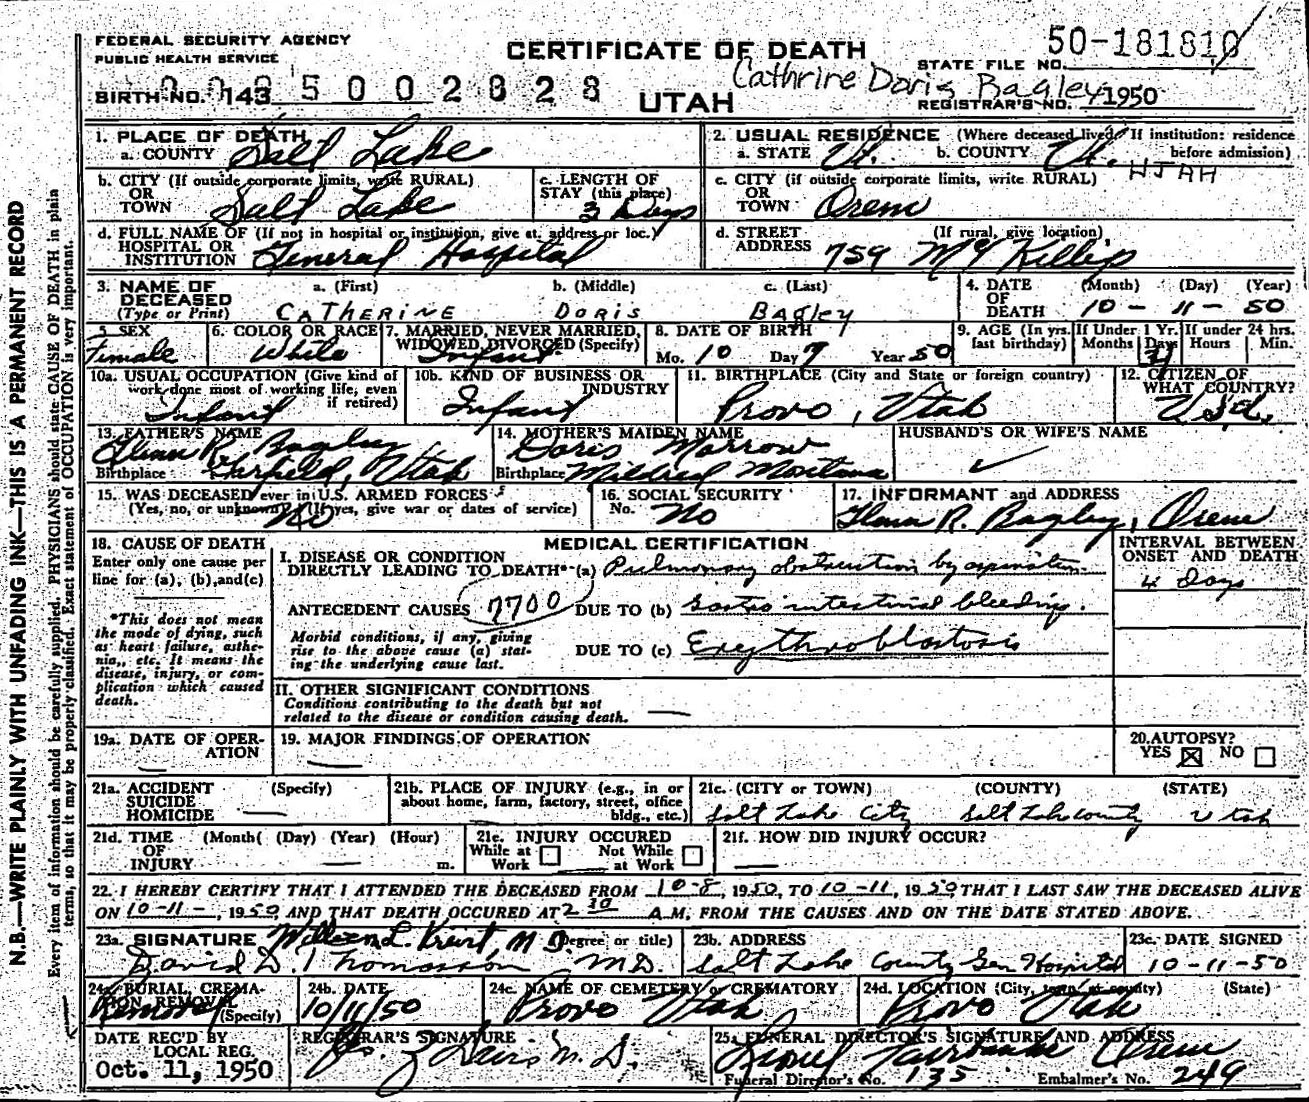 FEDERAL SECURITY AGENCY
PUBLIC HEALTH SERVICE
CERTIFICATE OF DEATH
50-181810
STATE FILE NO.
Cathrine Doris Bagley
BIRTH NO. 143
5002828
UTAH
REGISTRAR'S NO. 1950
1. PLACE OF DEATH
a. COUNTY Salt Lake
2. USUAL RESIDENCE (Where deceased lived. If institution: residence before admission)
a. STATE Ut. b. COUNTY Ut.
UTAH
b. CITY (If outside corporate limits, write RURAL) OR TOWN Salt Lake
c. LENGTH OF STAY (this place) 3 Days
c. CITY (if outside corporate limits, write RURAL) OR TOWN Orem
d. FULL NAME OF (If not in hospital or institution, give st. address or loc.) HOSPITAL OR INSTITUTION General Hospital
d. STREET ADDRESS (If rural, give location) 759 McKillip
3. NAME OF DECEASED (Type or Print)
a. (First) CATHERINE b. (Middle) DORIS c. (Last) BAGLEY
4. DATE OF DEATH (Month) (Day) (Year) 10-11-50
5. SEX Female
6. COLOR OR RACE White
7. MARRIED, NEVER MARRIED, WIDOWED, DIVORCED (Specify) Infant
8. DATE OF BIRTH Mo. 10 Day 7 Year 50
9. AGE (In yrs. last birthday) If Under 1 Yr. Months Days If under 24 hrs. Hours Min.
10a. USUAL OCCUPATION (Give kind of work done most of working life, even if retired) Infant
10b. KIND OF BUSINESS OR INDUSTRY Infant
11. BIRTHPLACE (City and State or foreign country) Provo, Utah
12. CITIZEN OF WHAT COUNTRY? U.S.A.
13. FATHER'S NAME Glenn R. Bagley
Birthplace Garfield, Utah
14. MOTHER'S MAIDEN NAME Doris Morrow
Birthplace Mildred Montana
HUSBAND'S OR WIFE'S NAME
15. WAS DECEASED ever in U.S. ARMED FORCES
(Yes, no, or unknown) (If yes, give war or dates of service) No
16. SOCIAL SECURITY No. No
17. INFORMANT and ADDRESS
Glenn R. Bagley, Orem
18. CAUSE OF DEATH
Enter only one cause per line for (a), (b), and (c)
*This does not mean the mode of dying, such as heart failure, asthenia, etc. It means the disease, injury, or complication which caused death.
MEDICAL CERTIFICATION
INTERVAL BETWEEN ONSET AND DEATH
I. DISEASE OR CONDITION DIRECTLY LEADING TO DEATH* (a) Pulmonary obstruction by aspiration
4 Days
ANTECEDENT CAUSES 7700 DUE TO (b) Gastro intestinal bleeding.
Morbid conditions, if any, giving rise to the above cause (a) stating the underlying cause last.
DUE TO (c) Erythroblastosis
II. OTHER SIGNIFICANT CONDITIONS
Conditions contributing to the death but not related to the disease or condition causing death.
19a. DATE OF OPERATION
19. MAJOR FINDINGS OF OPERATION
20. AUTOPSY?
YES ☒ NO ☐
21a. ACCIDENT SUICIDE HOMICIDE (Specify)
21b. PLACE OF INJURY (e.g., in or about home, farm, factory, street, office bldg., etc.)
21c. (CITY or TOWN) (COUNTY) (STATE)
Salt Lake City Salt Lake county Utah
21d. TIME OF INJURY (Month) (Day) (Year) (Hour) m.
21e. INJURY OCCURED
While at Work ☐ Not While at Work ☐
21f. HOW DID INJURY OCCUR?
22. I HEREBY CERTIFY THAT I ATTENDED THE DECEASED FROM 10-8, 1950, TO 10-11, 1950 THAT I LAST SAW THE DECEASED ALIVE
ON 10-11-, 1950 AND THAT DEATH OCCURED AT 2 10 A.M. FROM THE CAUSES AND ON THE DATE STATED ABOVE.
23a. SIGNATURE (Degree or title) M.D.
David D. Thomasson M.D.
23b. ADDRESS
Salt Lake County Gen Hospital
23c. DATE SIGNED
10-11-50
24a. BURIAL, CREMATION, REMOVAL (Specify) Removal
24b. DATE 10/11/50
24c. NAME OF CEMETERY or CREMATORY Provo Utah
24d. LOCATION (City, town, or county) (State) Provo Utah
DATE REC'D BY LOCAL REG.
Oct. 11, 1950
REGISTRAR'S SIGNATURE
M.D.
25. FUNERAL DIRECTOR'S SIGNATURE AND ADDRESS
Orem
Funeral Director's No. 135 Embalmer's No. 249
N.B.—WRITE PLAINLY WITH UNFADING INK—THIS IS A PERMANENT RECORD
Every item of information should be carefully supplied. PHYSICIANS should state CAUSE OF DEATH in plain
terms, so that it may be properly classified. Exact statement of OCCUPATION is very important.